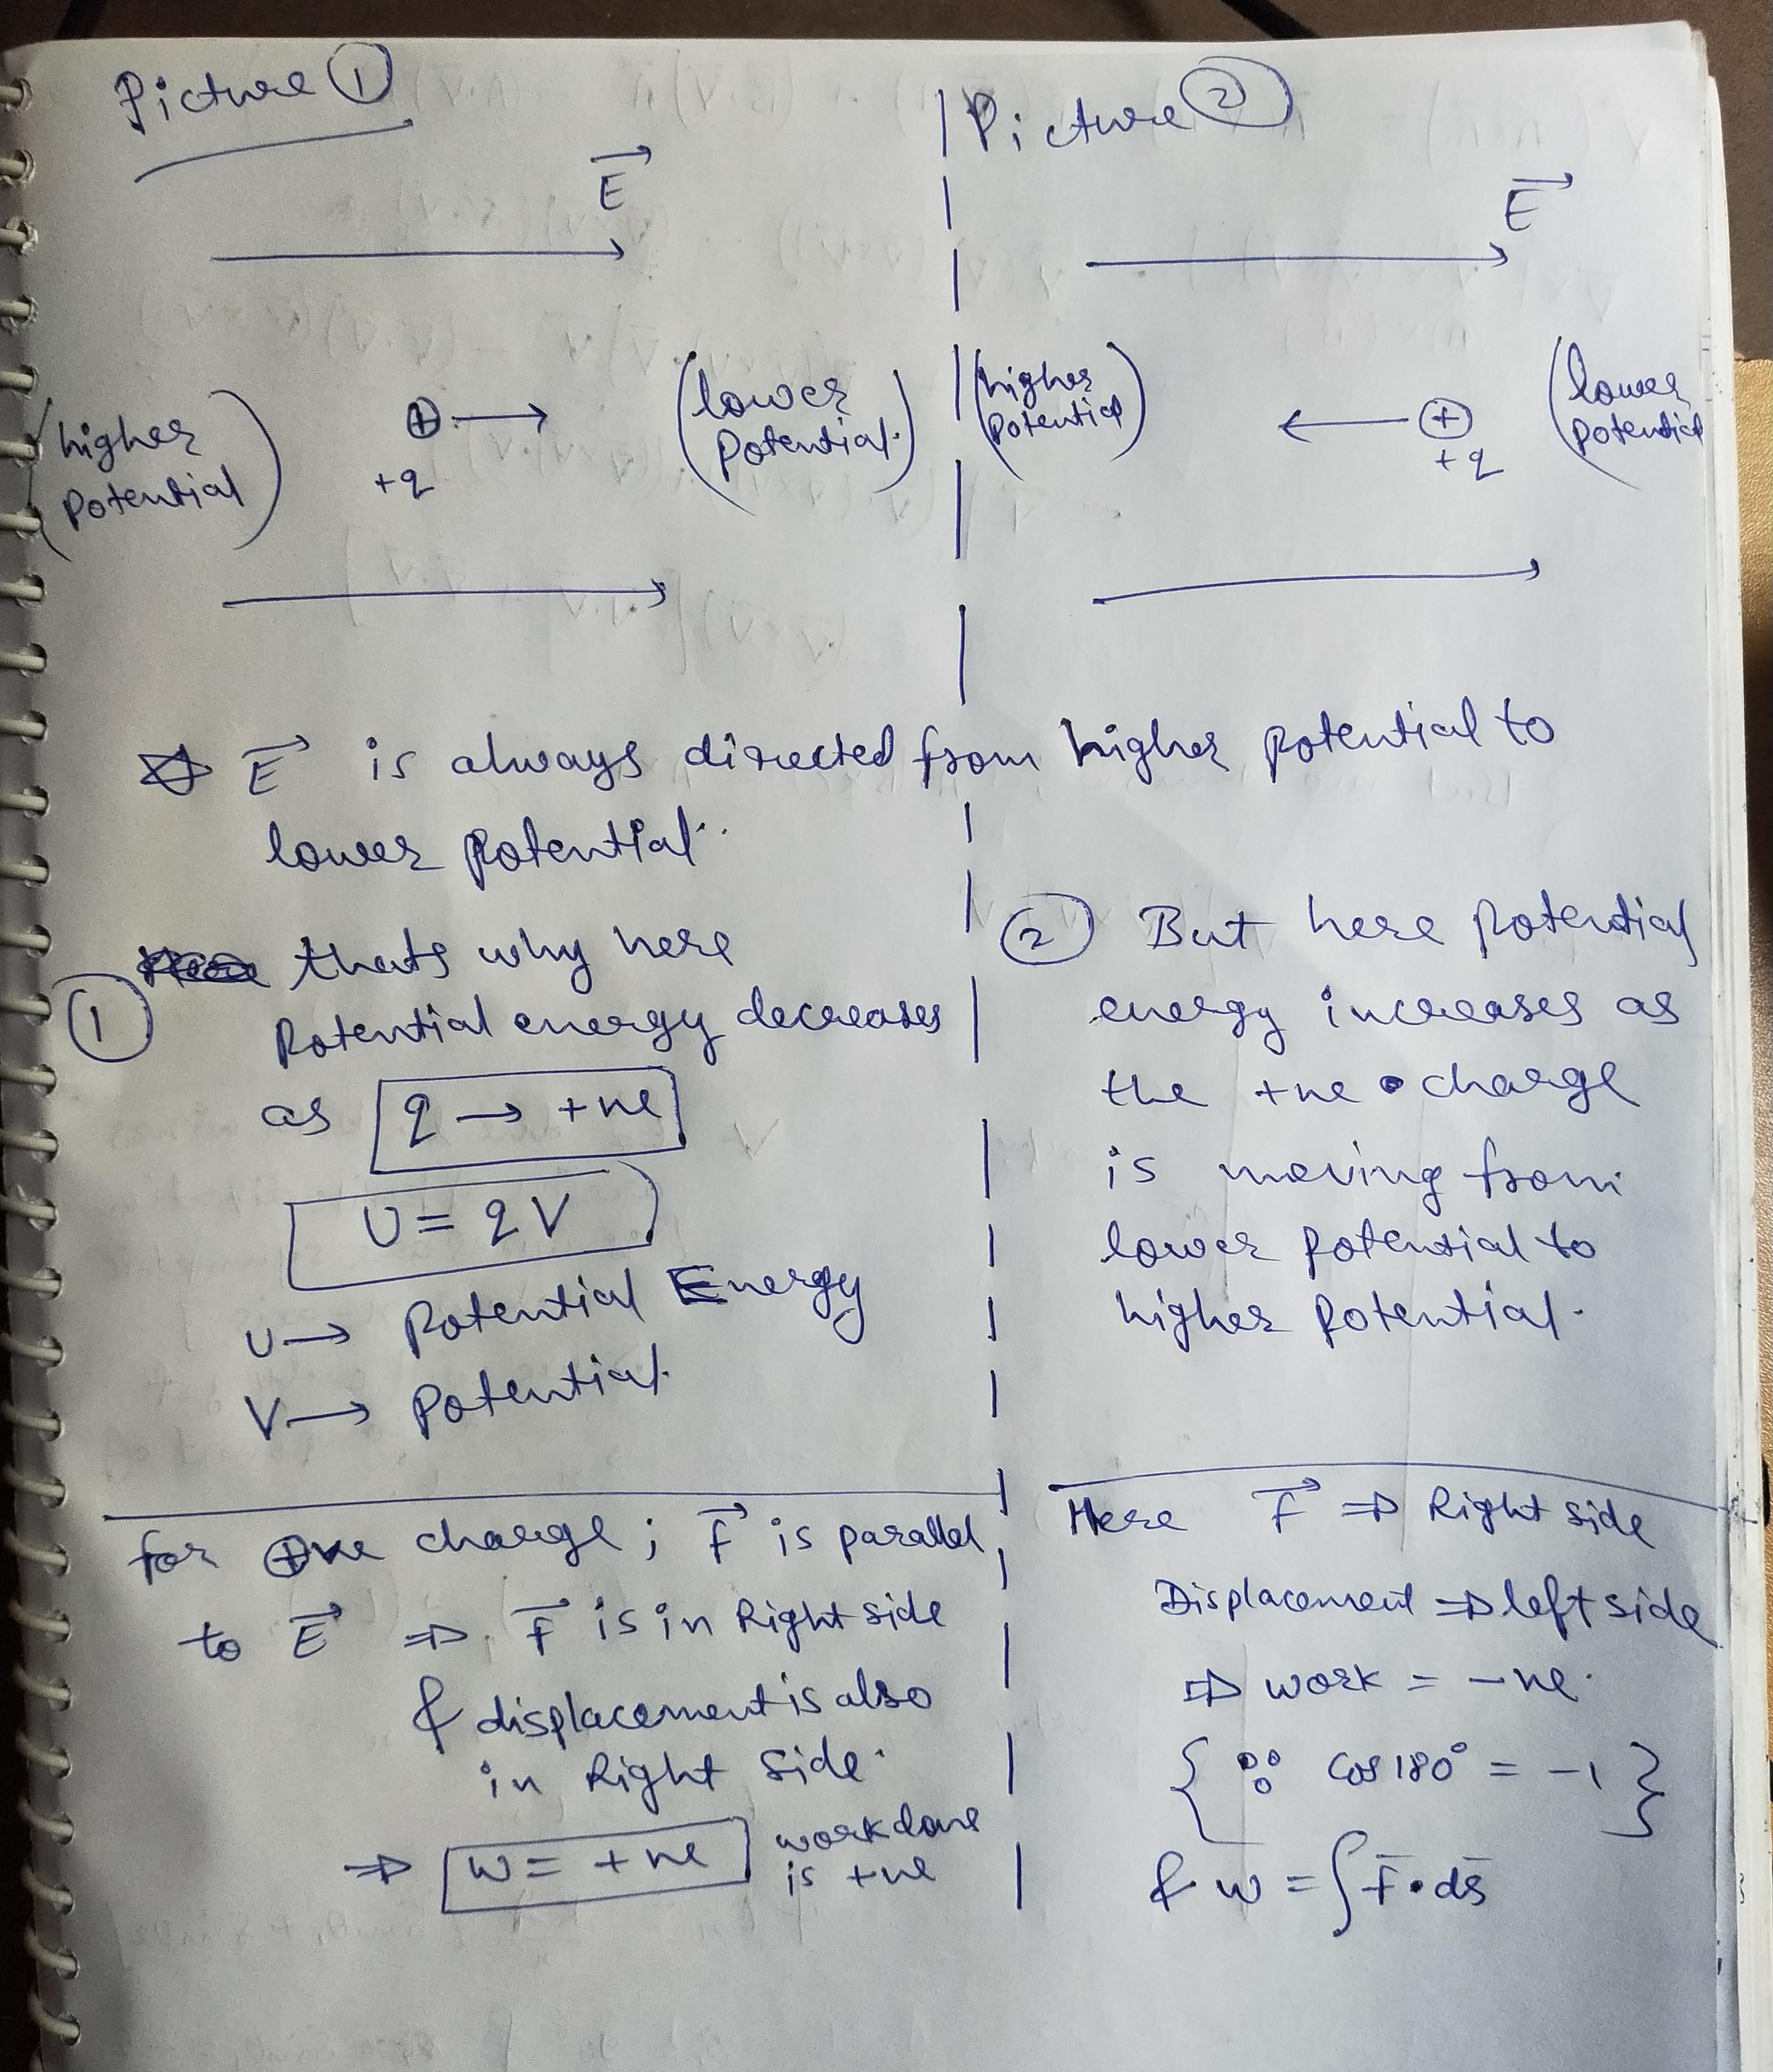 Picture ①
E
(higher
Potential)
⊕ →
+q
(lower
Potential.)
E is always directed from higher potential to
lower potential.
① thats why here
Potential energy decreases
as q → +ve
U = qV
U → Potential Energy
V → Potential.
for ⊕ve charge; F is parallel
to E ⇒ F is in Right side
& displacement is also
in Right side.
⇒ W = +ve workdone
is +ve
Picture ②
E
(higher
Potential)
← ⊕
+q
(lower
Potential
② But here Potential
energy increases as
the +ve charge
is moving from
lower potential to
higher potential.
Here F ⇒ Right side
Displacement ⇒ left side
⇒ work = -ve.
{ ∵ cos 180° = -1 }
& w = ∫ F • ds